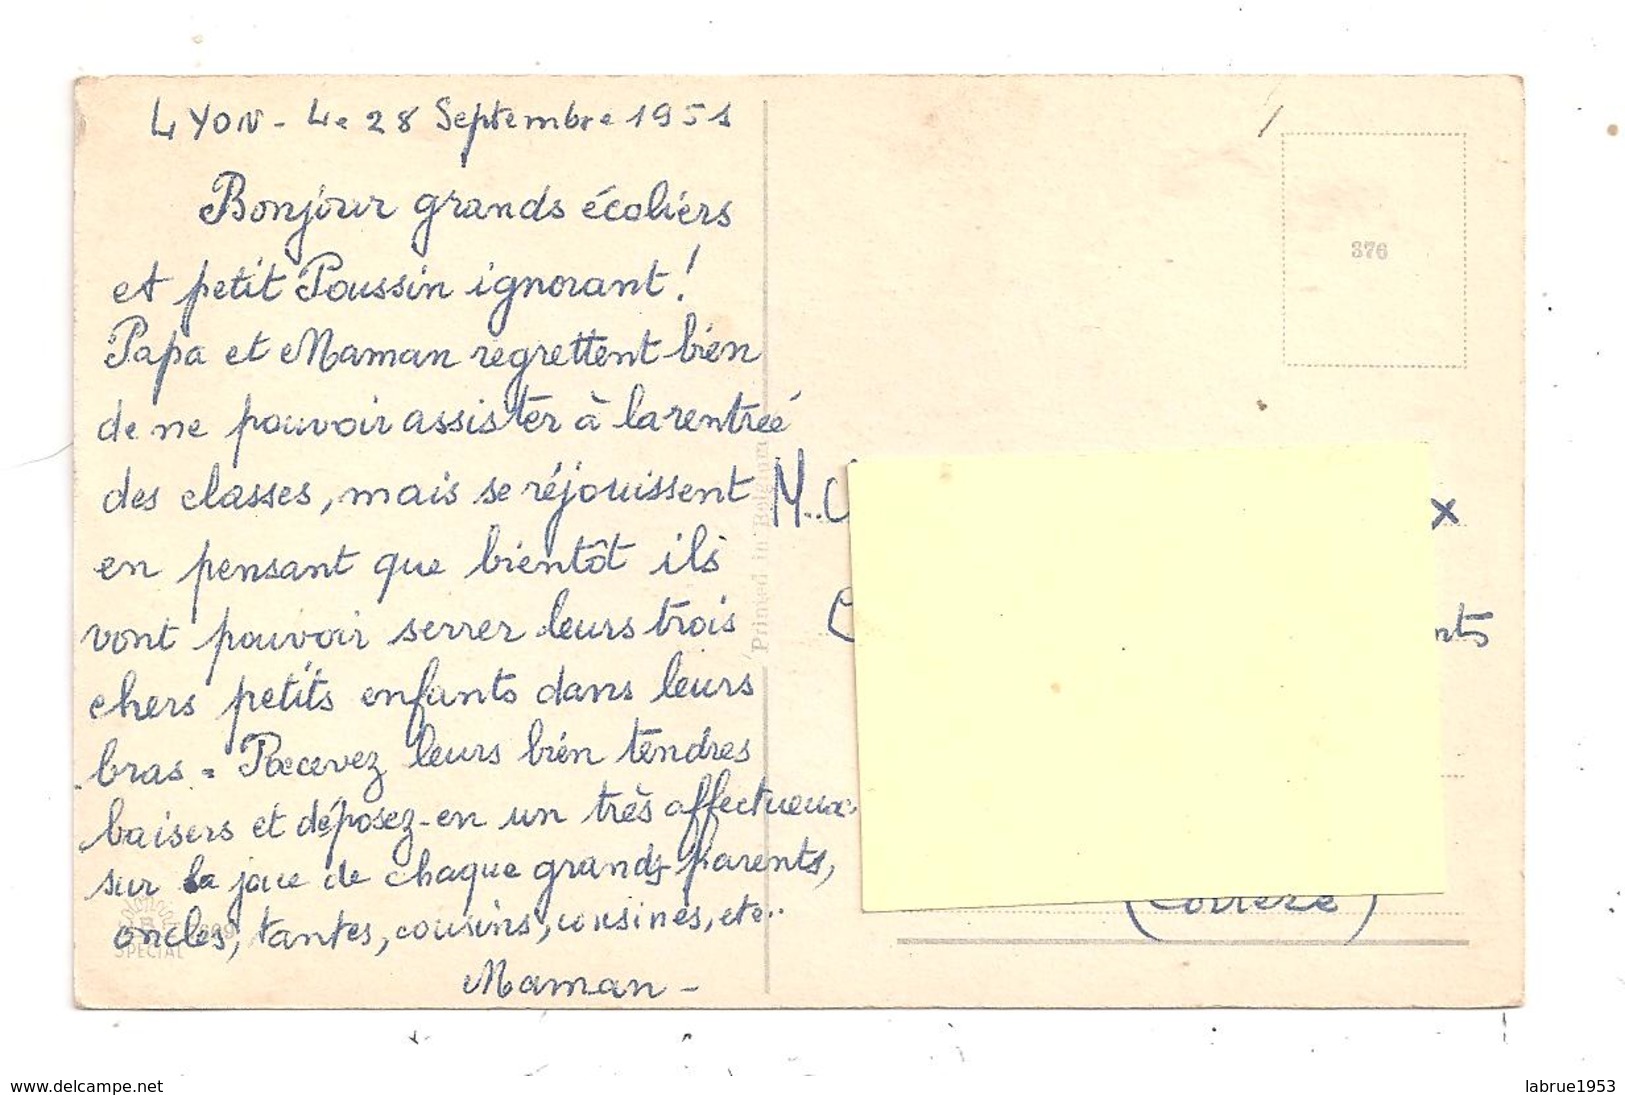 LYON - Le 28 Septembre 1951
Bonjour grands écoliers
et petit Poussin ignorant !
Papa et Maman regrettent bien
de ne pouvoir assister à la rentrée
des classes, mais se réjouissent
en pensant que bientôt ils
vont pouvoir serrer leurs trois
chers petits enfants dans leurs
bras = Recevez leurs bien tendres
baisers et déposez-en un très affectueux
sur la joue de chaque grands-parents,
oncles, tantes, cousins, cousines, etc..
Maman -
SPECIAL
Printed in Belgium
376
M.
x
nts
(Corrèze)
www.delcampe.net
labrue1953